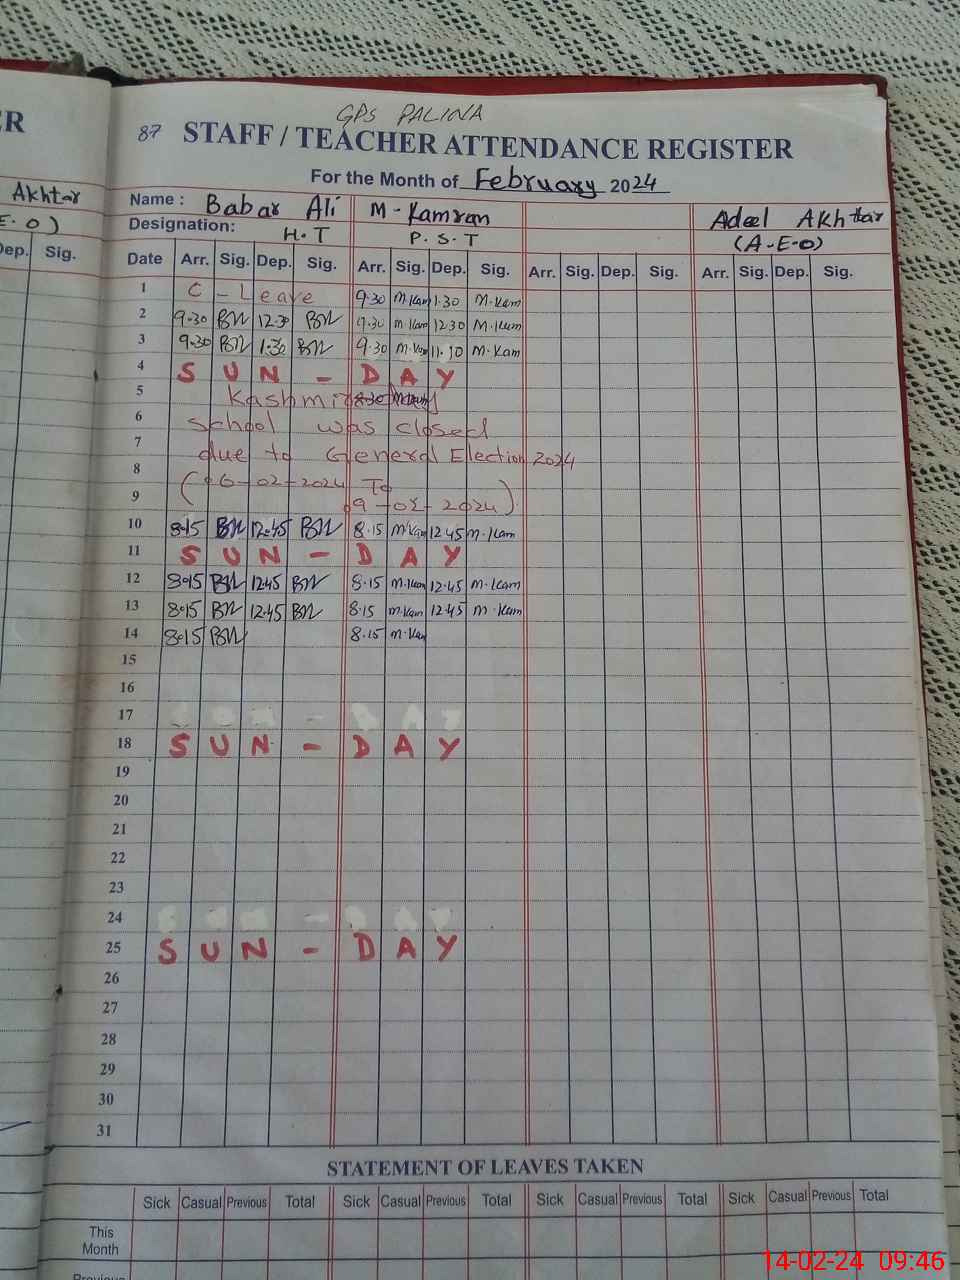 GPS PALINA
87 STAFF / TEACHER ATTENDANCE REGISTER
ER
For the Month of February 2024
Akhtar
Name : Babar Ali M-Kamran Adeel Akhtar
E.O)
Designation: H.T P.S.T (A-E-O)
Dep. Sig.
Date Arr. Sig. Dep. Sig. Arr. Sig. Dep. Sig. Arr. Sig. Dep. Sig. Arr. Sig. Dep. Sig.
1 C - Leave 9.30 M.Kam 1.30 M.Kam
2 9.30 12.30 9.30 M.Kam 12.30 M.Kam
3 9.30 1.30 9.30 M.Kam M.Kam
4 S U N - D A Y
5 Kashmir
6 School was closed
7 due to General Election 2024
8 (06-02-2024 To
9 9-02-2024)
10 8.15 12.45 8.15 M.Kam 12.45 M.Kam
11 S U N - D A Y
12 8.15 12.45 8.15 M.Kam 12.45 M.Kam
13 8.15 12.45 8.15 M.Kam 12.45 M.Kam
14 8.15 8.15 M.Kam
15
16
17
18 S U N - D A Y
19
20
21
22
23
24
25 S U N - D A Y
26
27
28
29
30
31
STATEMENT OF LEAVES TAKEN
Sick Casual Previous Total Sick Casual Previous Total Sick Casual Previous Total Sick Casual Previous Total
This
Month
Previous
14-02-24 09:46